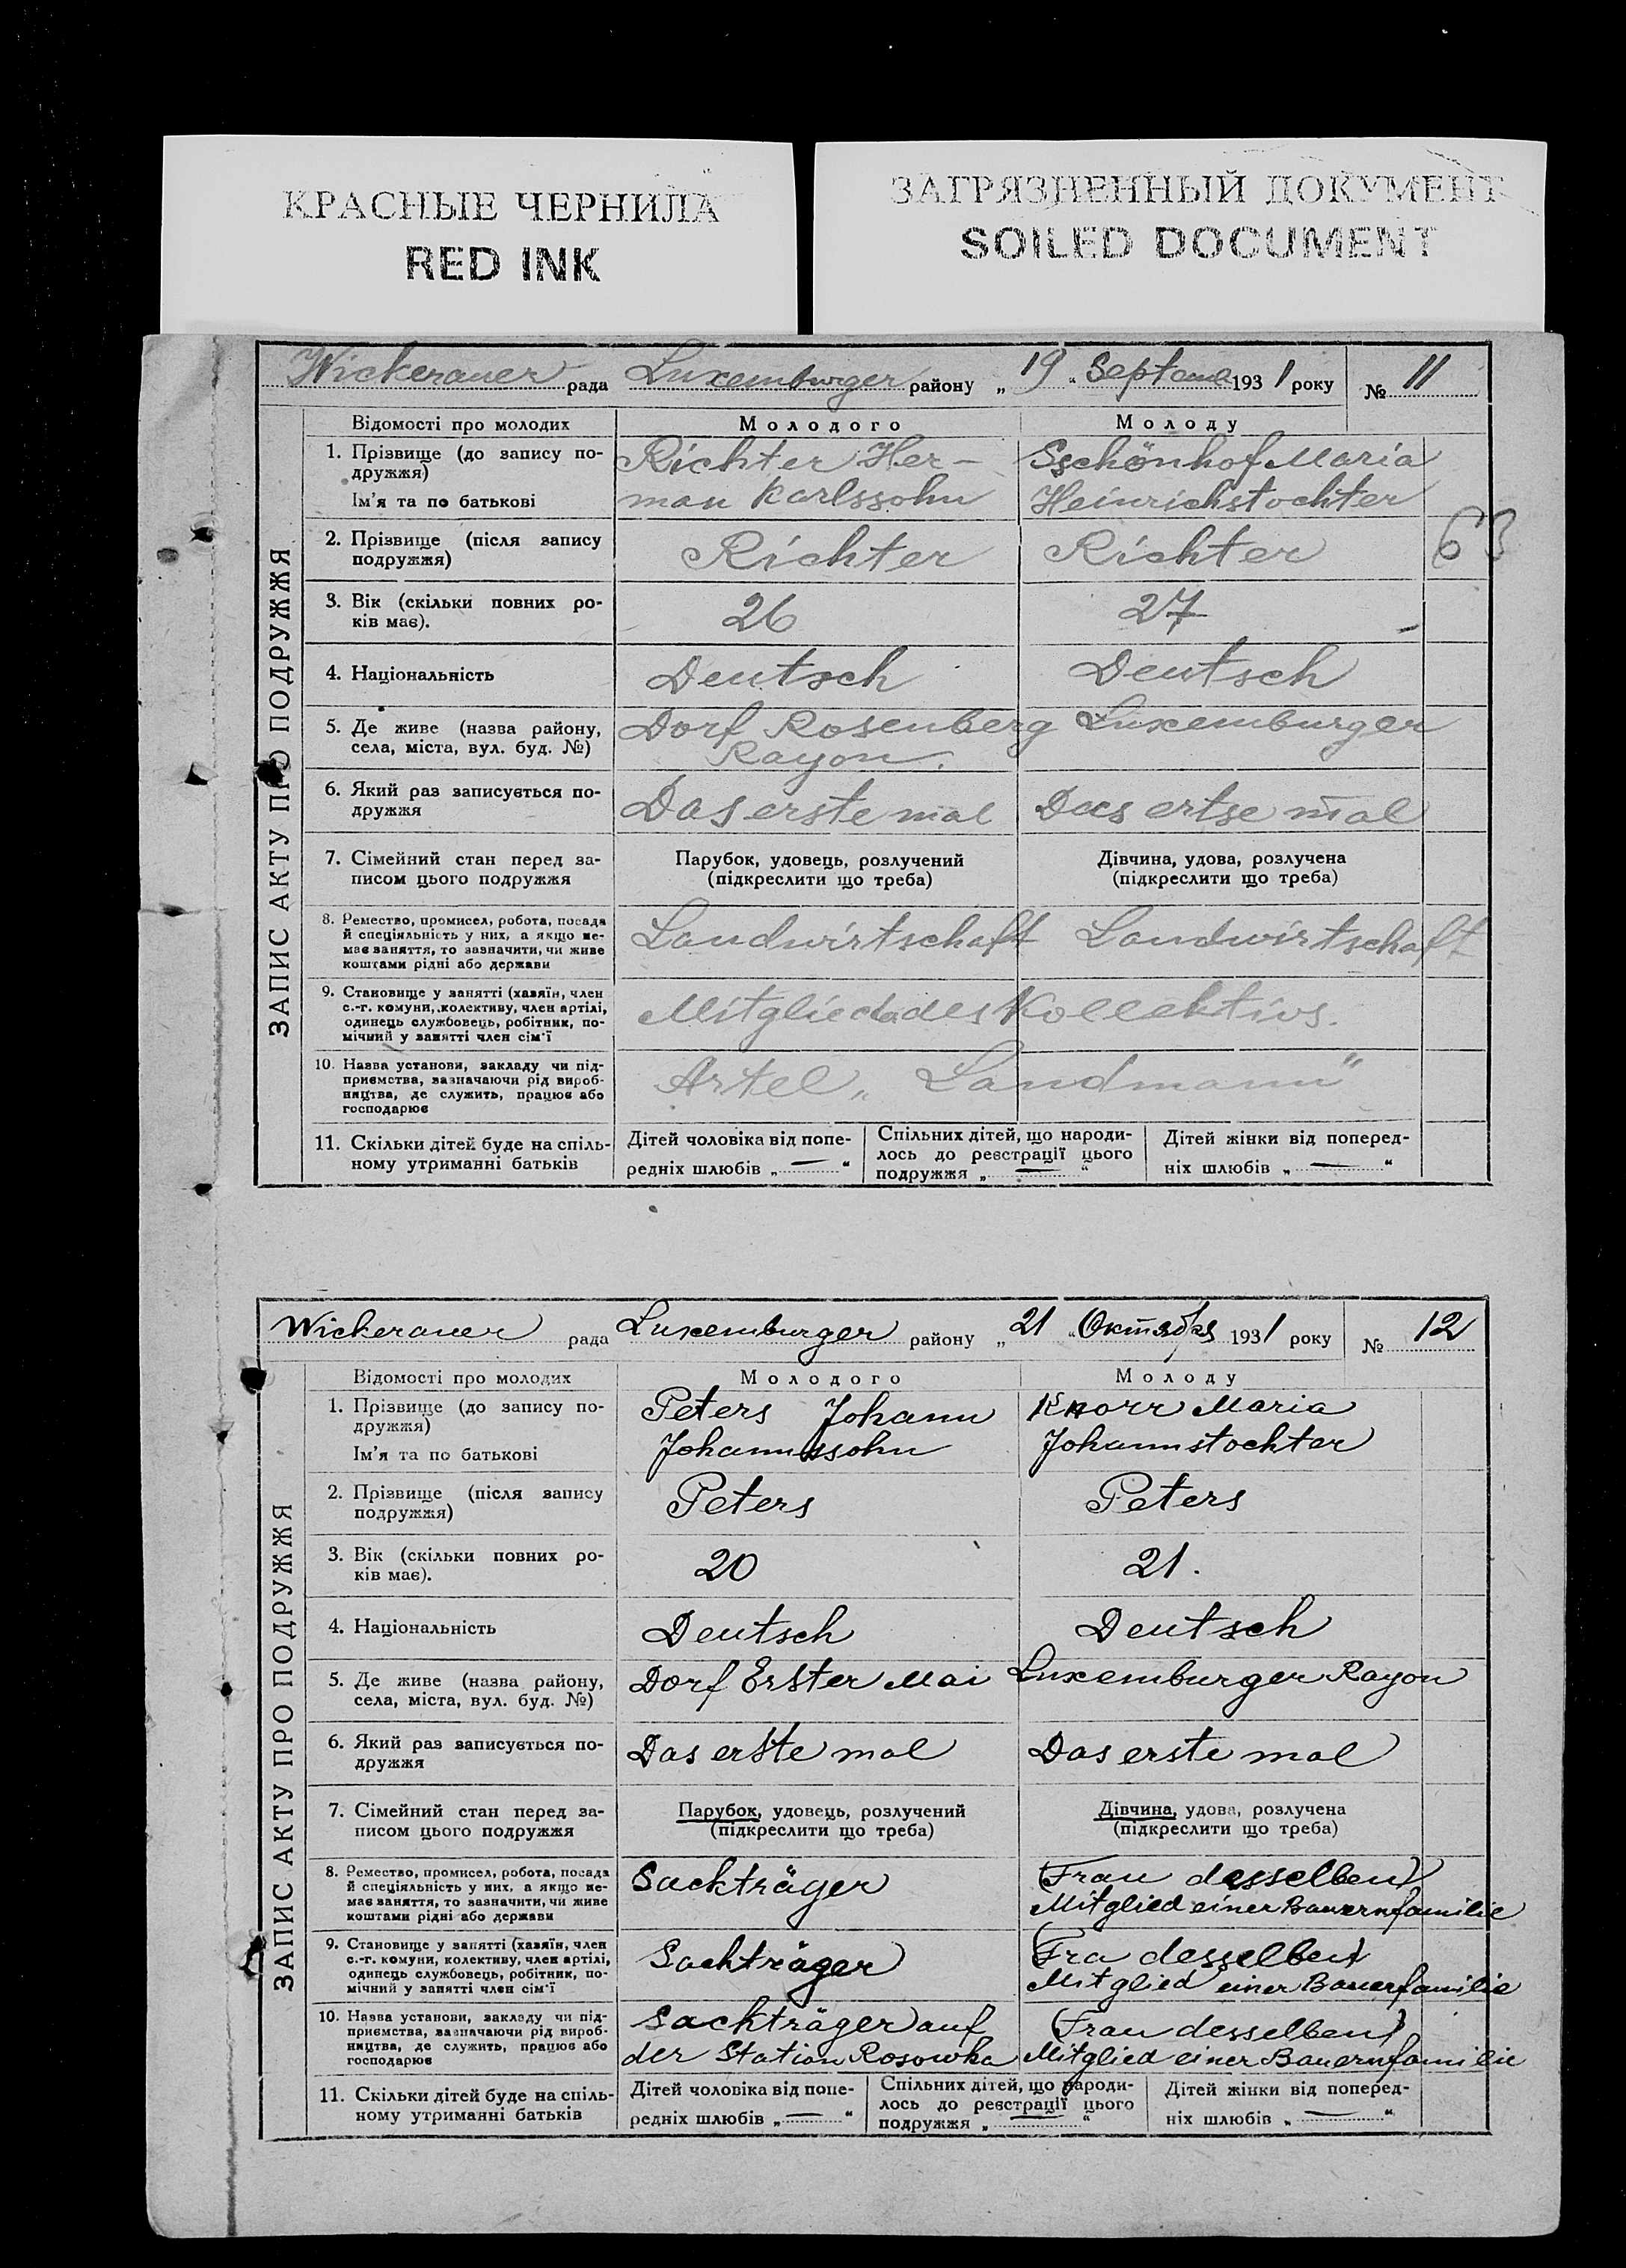 КРАСНЫЕ ЧЕРНИЛА
RED INK
ЗАГРЯЗНЕННЫЙ ДОКУМЕНТ
SOILED DOCUMENT
Wickerauer рада Luxemburger району „ 19 “ Septem 193 1 року № 11
ЗАПИС АКТУ ПРО ПОДРУЖЖЯ
Відомості про молодих Молодого Молоду
1. Прізвище (до запису по-
дружжя)
Ім'я та по батькові
Richter Her-
man Karlssohn
Sschönhof Maria
Heinrichstochter
2. Прізвище (після запису
подружжя)
Richter Richter
63
3. Вік (скільки повних ро-
ків має).
26 27
4. Національність Deutsch Deutsch
5. Де живе (назва району,
села, міста, вул. буд. №)
Dorf Rosenberg Luxemburger
Rayon.
6. Який раз записується по-
дружжя
Das erste mal Das ertse mal
7. Сімейний стан перед за-
писом цього подружжя
Парубок, удовець, розлучений
(підкреслити що треба)
Дівчина, удова, розлучена
(підкреслити що треба)
8. Ремество, промисел, робота, посада
й спеціяльність у них, а якщо не-
має заняття, то зазначити, чи живе
коштами рідні або держави
Landwirtschaft Landwirtschaft
9. Становище у занятті (хазяїн, член
с.-г. комуни, колективу, член артілі,
одинець службовець, робітник, по-
мічний у занятті член сім'ї
Mitglied des Kollektivs.
10. Назва установи, закладу чи під-
приємства, зазначаючи рід вироб-
ництва, де служить, працює або
господарює
Artel „ Landmann"
11. Скільки дітей буде на спіль-
ному утриманні батьків
Дітей чоловіка від попе-
редніх шлюбів „ — “
Спільних дітей, що народи-
лось до реєстрації цього
подружжя „ — “
Дітей жінки від поперед-
ніх шлюбів „ — “
Wickerauer рада Luxemburger району „ 21 “ Октября 193 1 року № 12
ЗАПИС АКТУ ПРО ПОДРУЖЖЯ
Відомості про молодих Молодого Молоду
1. Прізвище (до запису по-
дружжя)
Ім'я та по батькові
Peters Johann
Johannssohn
Knorr Maria
Johannstochter
2. Прізвище (після запису
подружжя)
Peters Peters
3. Вік (скільки повних ро-
ків має).
20 21.
4. Національність Deutsch Deutsch
5. Де живе (назва району,
села, міста, вул. буд. №)
Dorf Erster Mai Luxemburger Rayon
6. Який раз записується по-
дружжя
Das erste mal Das erste mal
7. Сімейний стан перед за-
писом цього подружжя
Парубок, удовець, розлучений
(підкреслити що треба)
Дівчина, удова, розлучена
(підкреслити що треба)
8. Ремество, промисел, робота, посада
й спеціяльність у них, а якщо не-
має заняття, то зазначити, чи живе
коштами рідні або держави
Sackträger
(Frau desselben)
Mitglied einer Bauernfamilie
9. Становище у занятті (хазяїн, член
с.-г. комуни, колективу, член артілі,
одинець службовець, робітник, по-
мічний у занятті член сім'ї
Sackträger
(Fra desselben)
Mitglied einer Bauerfamilie
10. Назва установи, закладу чи під-
приємства, зазначаючи рід вироб-
ництва, де служить, працює або
господарює
Sackträger auf
der Station Rosowka
(Frau desselben)
Mitglied einer Bauernfamilie
11. Скільки дітей буде на спіль-
ному утриманні батьків
Дітей чоловіка від попе-
редніх шлюбів „ — “
Спільних дітей, що народи-
лось до реєстрації цього
подружжя „ — “
Дітей жінки від поперед-
ніх шлюбів „ — “